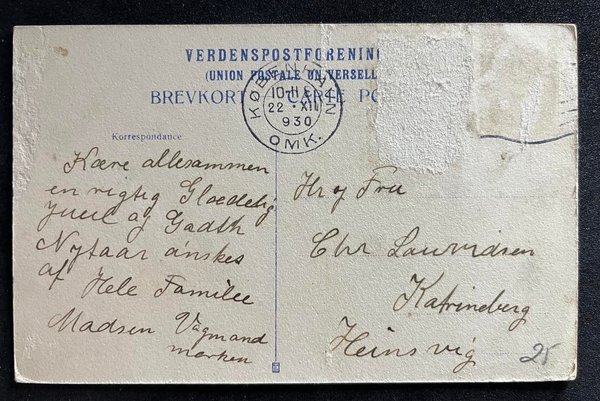 VERDENSPOSTFORENIN
(UNION POSTALE UNIVERSELL
BREVKORT - CARTE PO
KØBENHAVN
10-11
22 · XII
930
OMK.
Korrespondance
Kære allesammen
en rigtig Gloedelig
Juul og Godth
Nytaar ønskes
af Hele Familee
Madsen Vagmand
marken
Hr og Fru
Chr Lauridsen
Katrineberg
Heinsvig
25